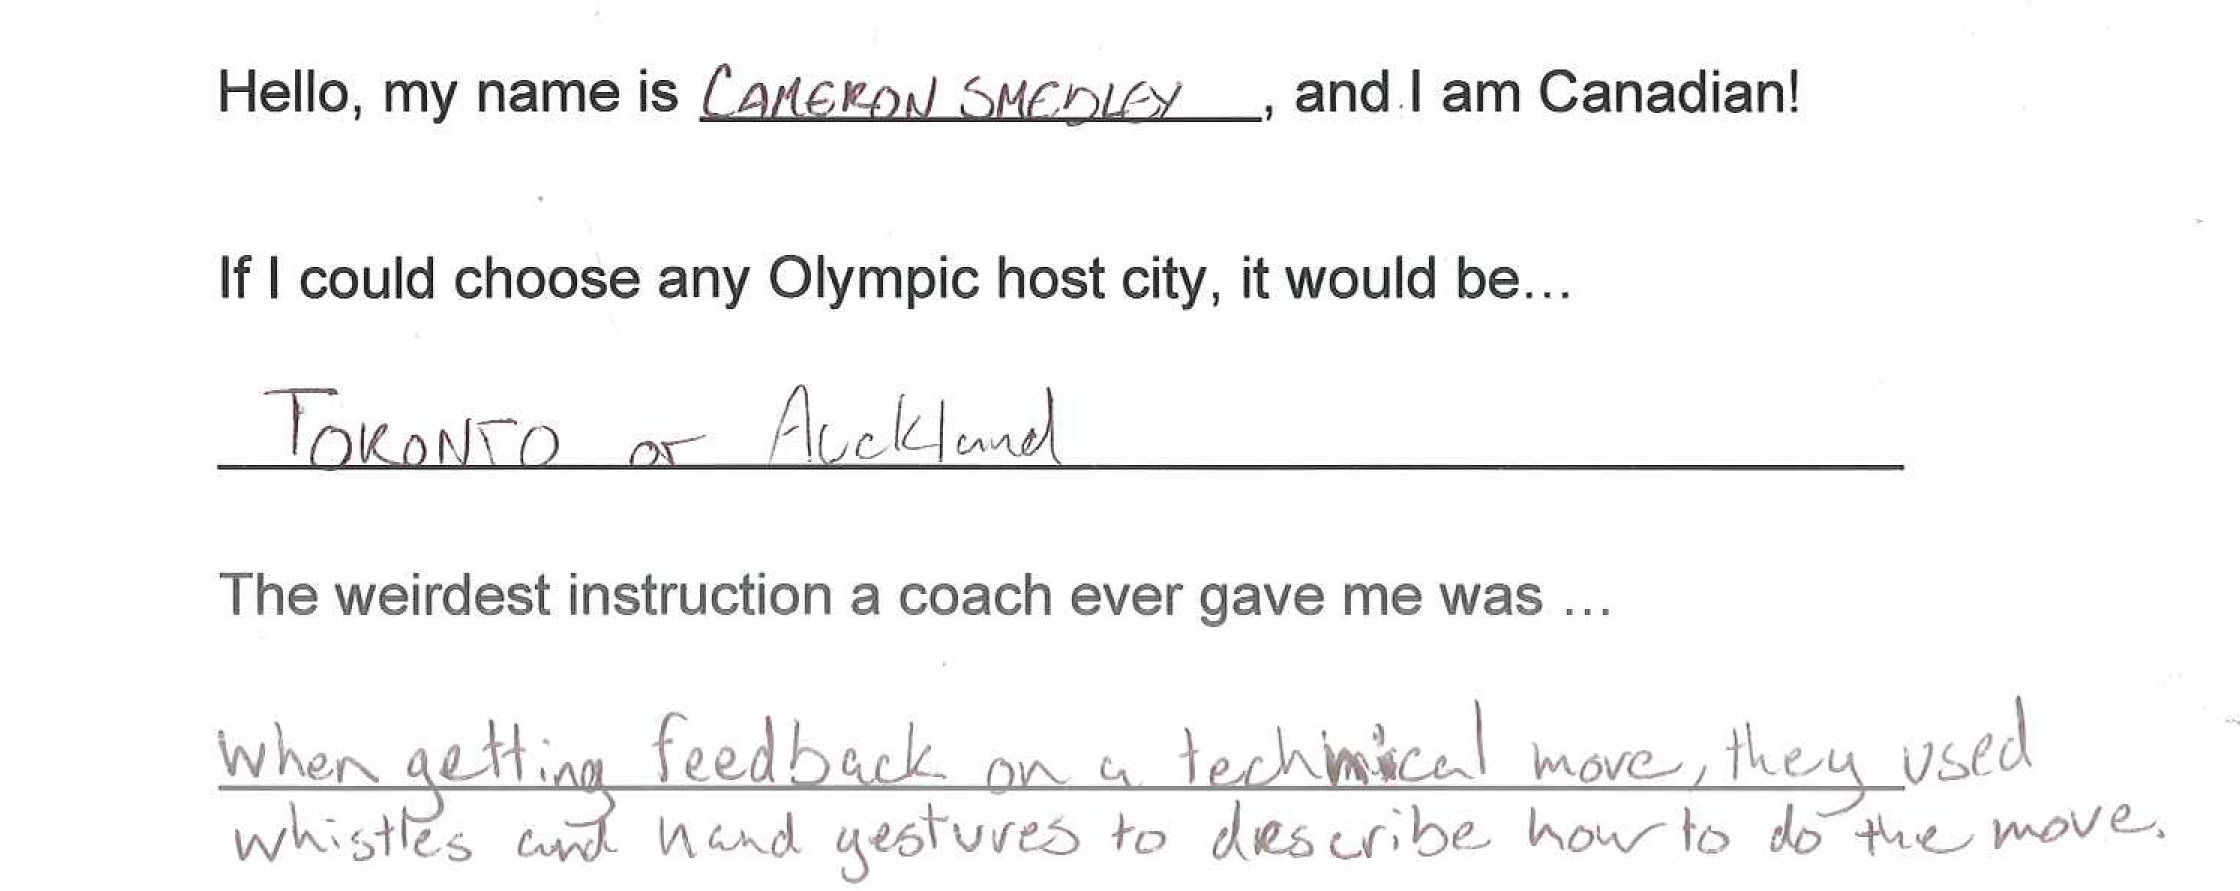 Hello, my name is CAMERON SMEDLEY, and I am Canadian!
If I could choose any Olympic host city, it would be...
TORONTO or Auckland
The weirdest instruction a coach ever gave me was ...
when getting feedback on a technical move, they used
whistles and hand gestures to describe how to do the move.